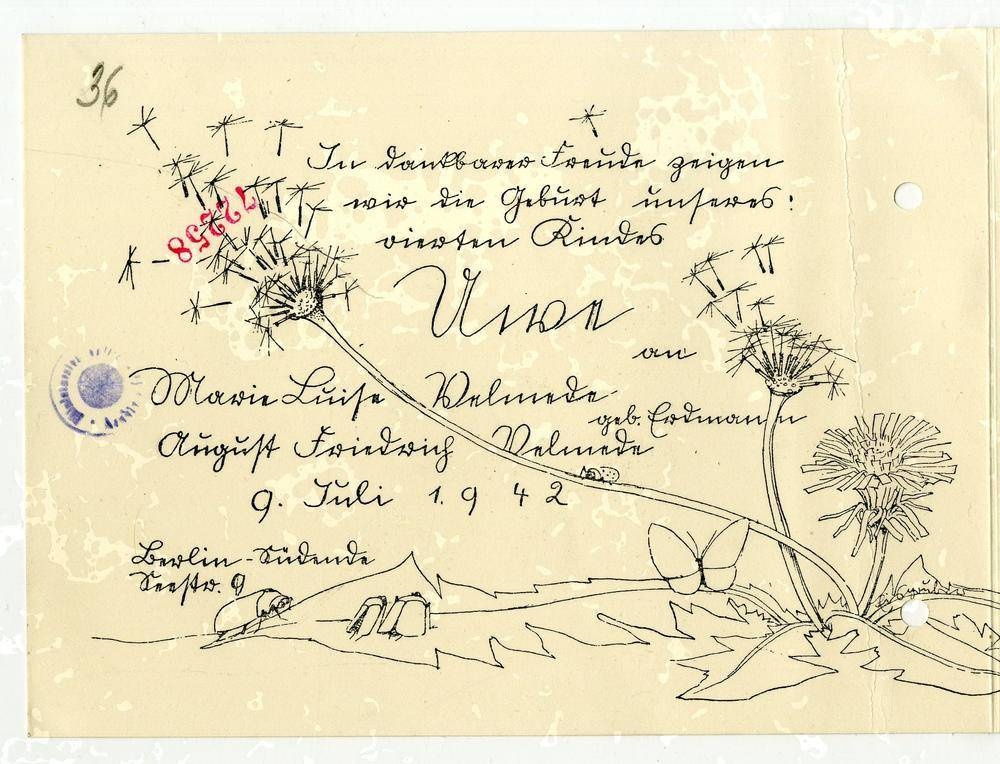 36
In dankbarer Freude zeigen
wir die Geburt unseres:
vierten Kindes
72258
Uwe
an
Marie Luise Velmede
geb. Erdmann
August Friedrich Velmede
9. Juli 1942
Berlin-Südende
Seestr. 9